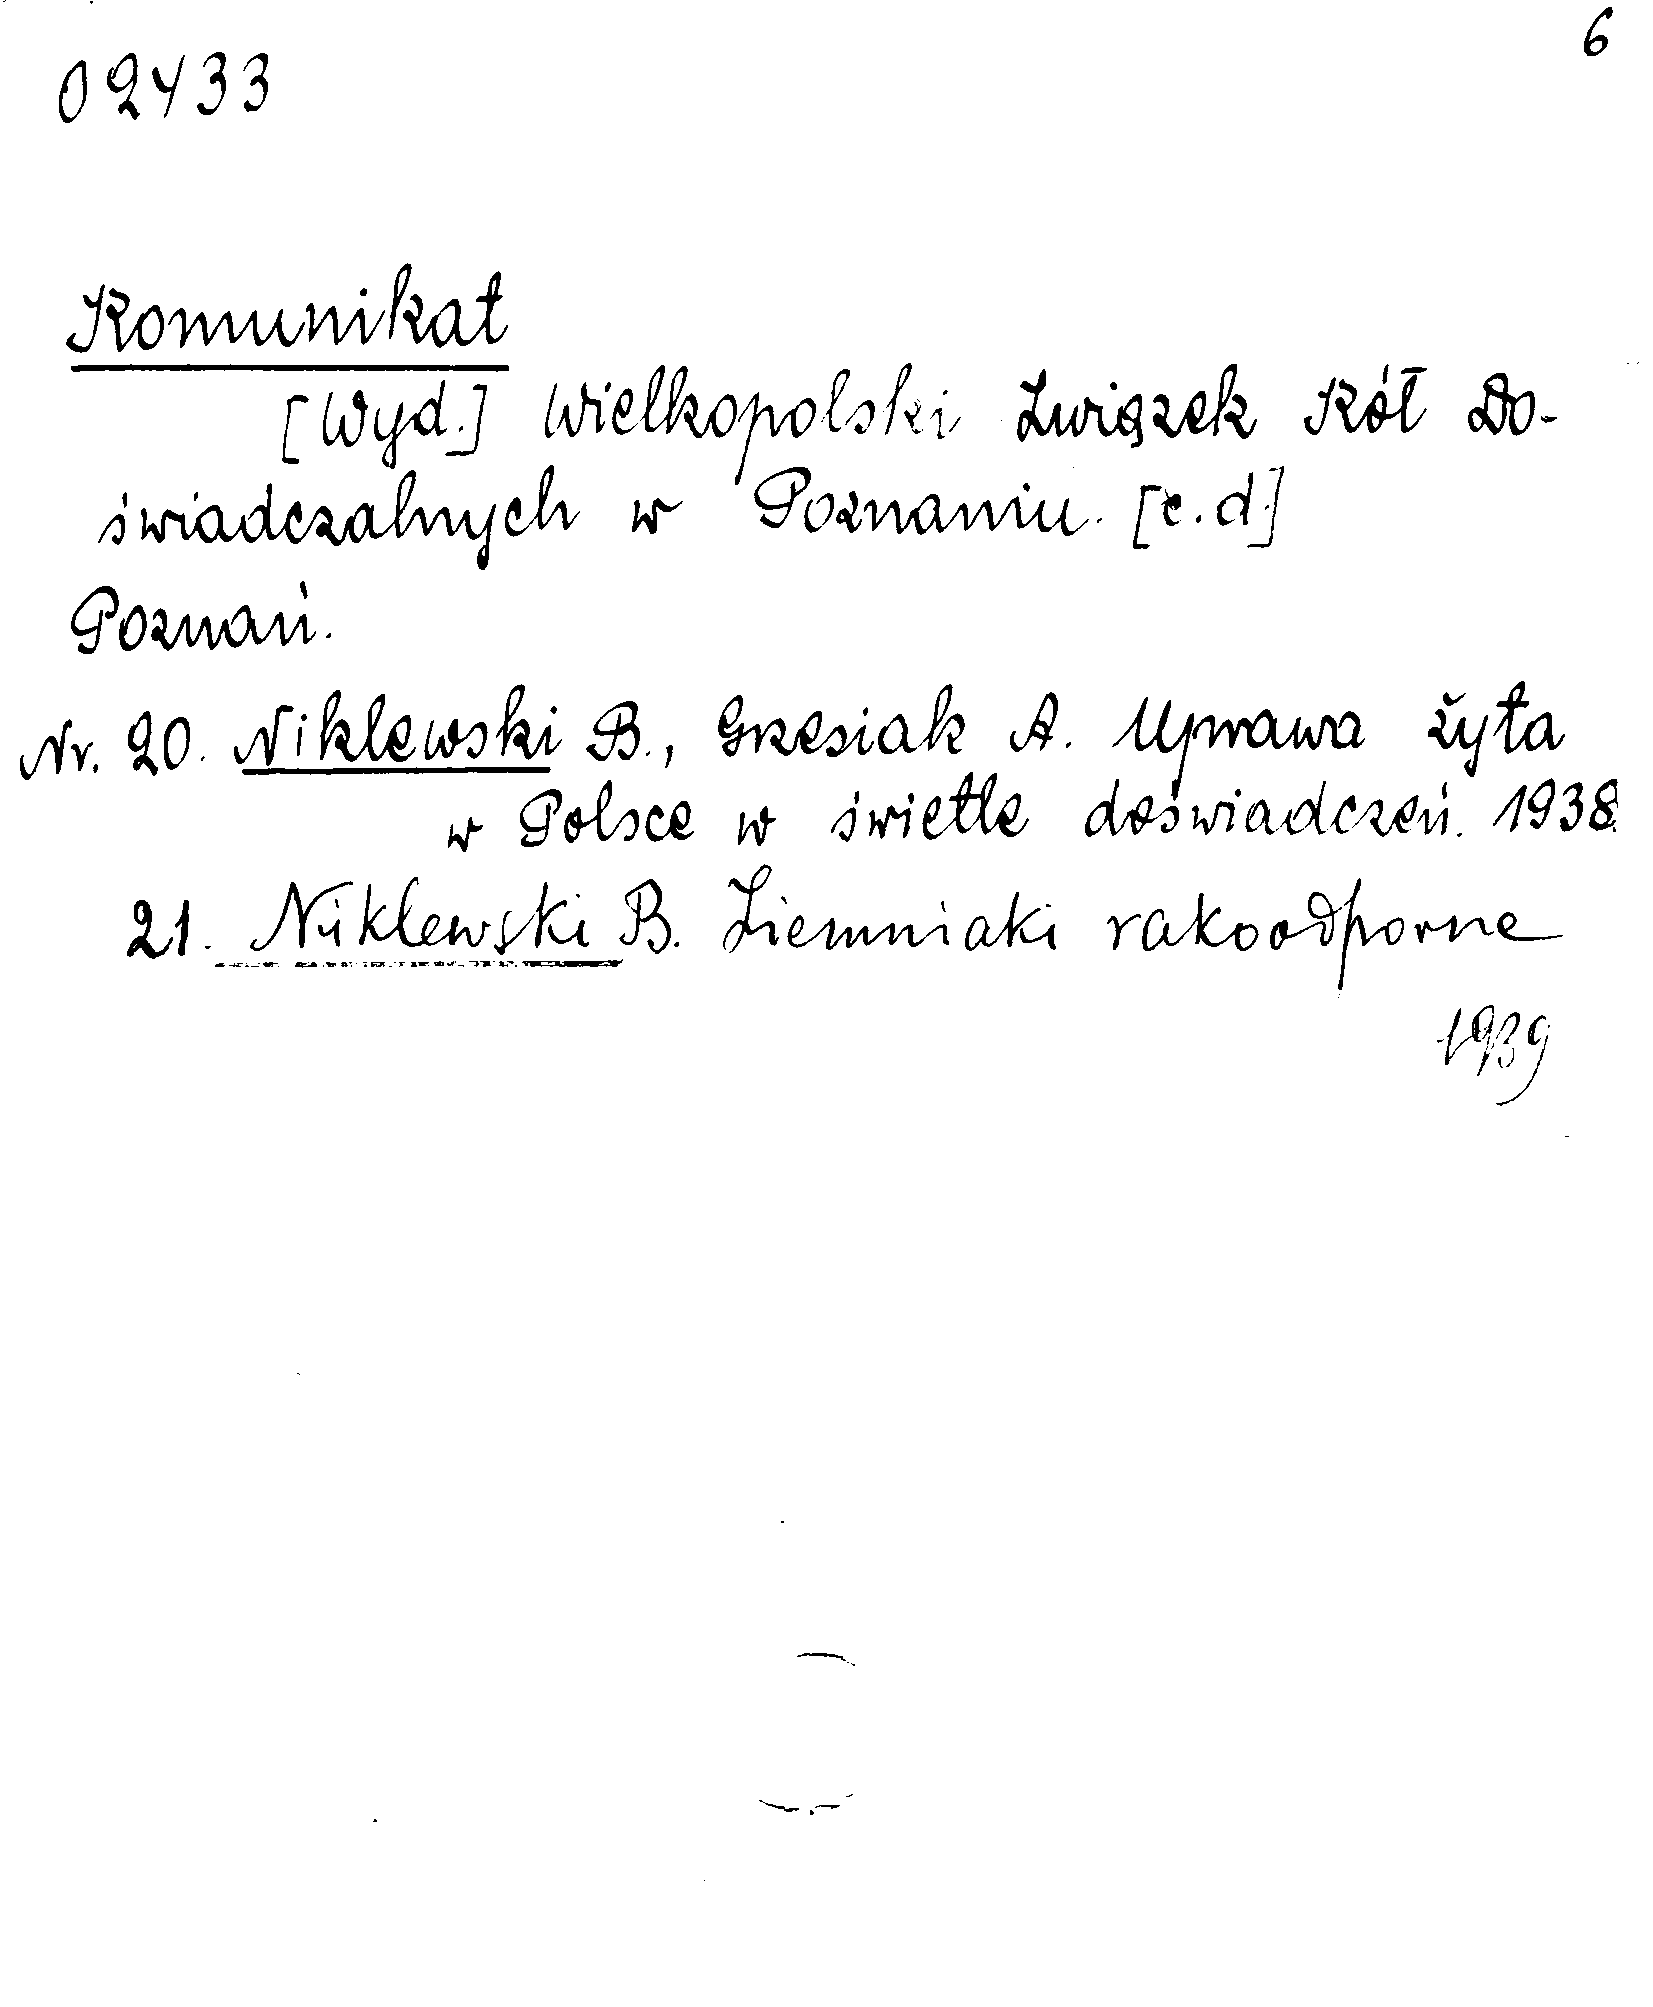 6
02433
Komunikat
[Wyd.] Wielkopolski Związek Kół Do-
świadczalnych w Poznaniu. [c.d.]
Poznań.
Nr. 20. Niklewski B., Grzesiak A. Uprawa żyta
w Polsce w świetle doświadczeń. 1938.
21. Niklewski B. Ziemniaki rakoodporne
1939